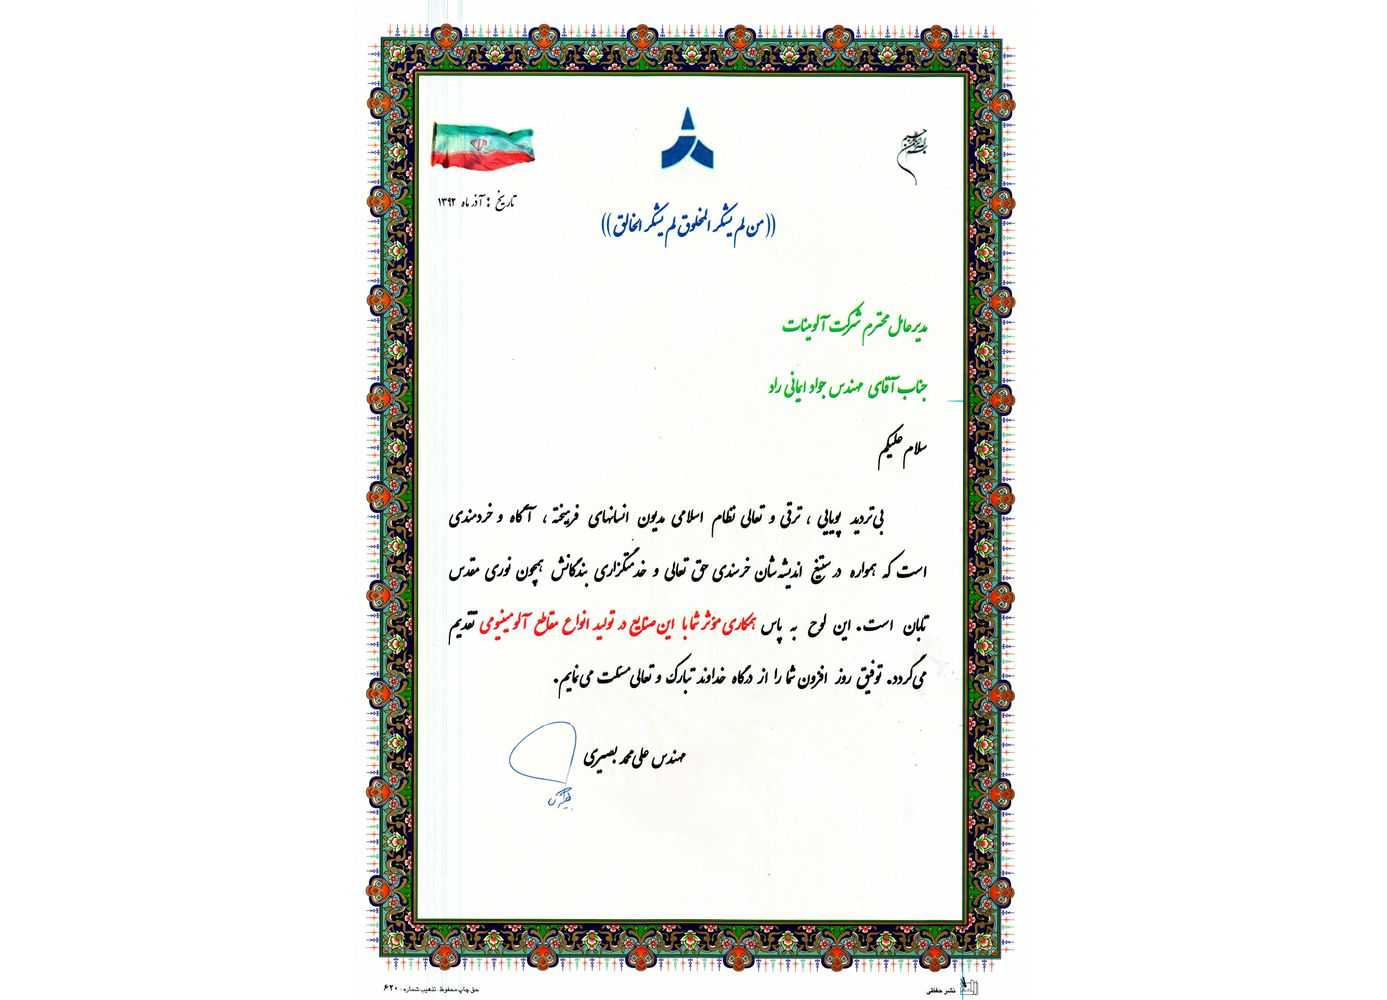 بسم الله الرحمن الرحیم
تاریخ : آذر ماه ۱۳۹۲
((من لم یشکر المخلوق لم یشکر الخالق))
مدیرعامل محترم شرکت آلومینات
جناب آقای مهندس جواد ایمانی راد
سلام علیکم
بی‌تردید پویایی ، ترقی و تعالی نظام اسلامی مدیون انسانهای فرهیخته ، آگاه و خردمندی
است که همواره در ستیغ اندیشه‌شان خرسندی حق تعالی و خدمتگزاری بندگانش همچون نوری مقدس
تابان است. این لوح به پاس همکاری مؤثر شما با این صنایع در تولید انواع مقاطع آلومینیومی تقدیم
می‌گردد. توفیق روز افزون شما را از درگاه خداوند تبارک و تعالی مسئلت می‌نمایم.
مهندس علی‌محمد بصیری
نشر حفظی
حق چاپ محفوظ تذهیب شماره ۶۲۰